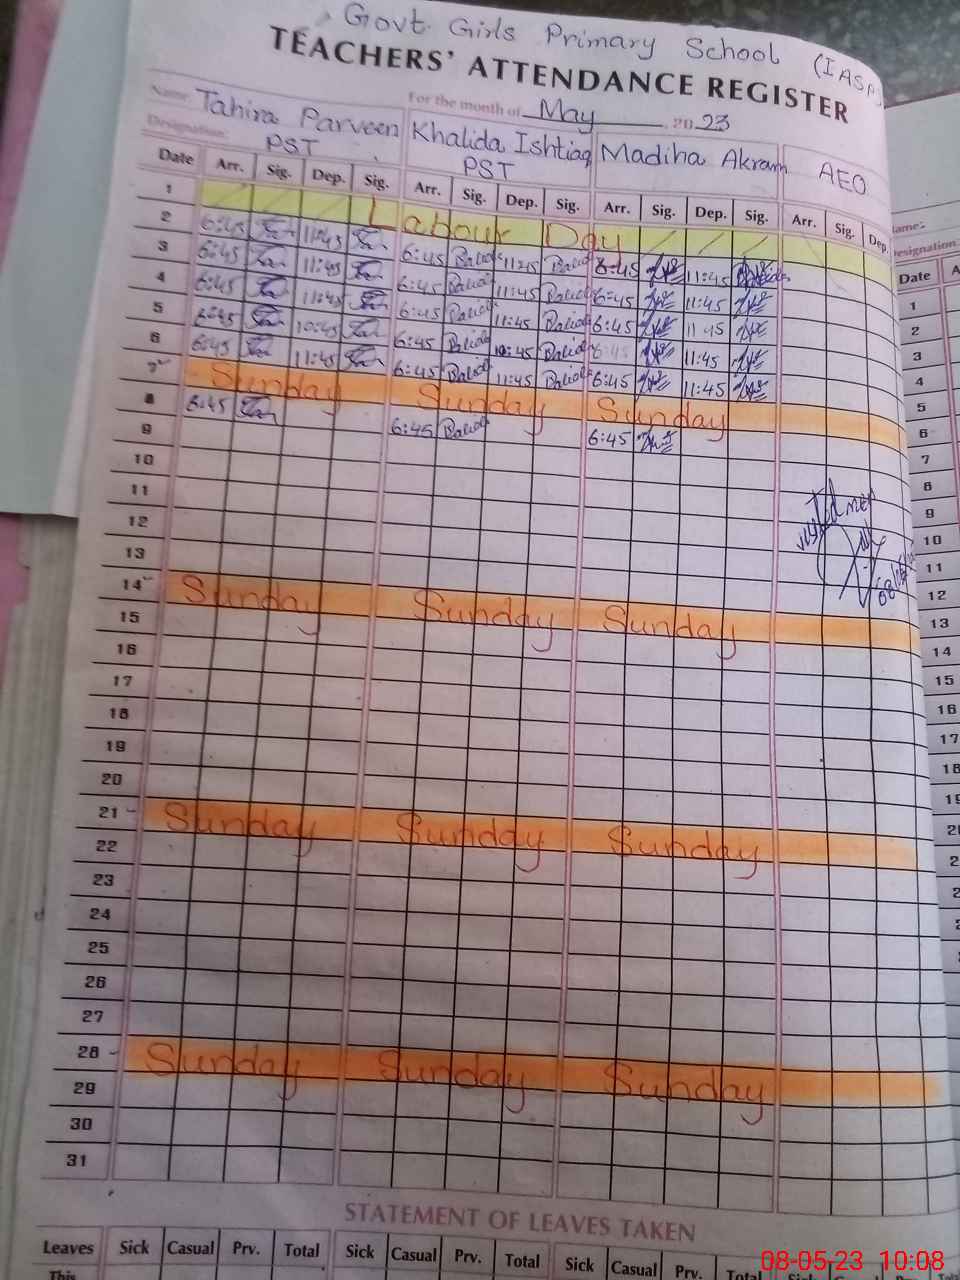 Govt. Girls Primary School (IASPS
TEACHERS' ATTENDANCE REGISTER
For the month of May 2023
Name: Tahira Parveen Khalida Ishtiaq Madiha Akram AEO
Designation: PST PST
Date Arr. Sig. Dep. Sig. Arr. Sig. Dep. Sig. Arr. Sig. Dep. Sig. Arr. Sig. Dep.
1 Labour Day
2 6:45 11:45 6:45 11:45 6:45 11:45
3 6:45 11:45 6:45 11:45 6:45 11:45
4 6:45 11:45 6:45 11:45 6:45 11:45
5 6:45 10:45 6:45 10:45 11:45
6 6:45 11:45 6:45 11:45 6:45 11:45
7 Sunday Sunday Sunday
8 6:45 6:45 6:45
9
10
11
12
13
14 Sunday Sunday Sunday
15
16
17
18
19
20
21 Sunday Sunday Sunday
22
23
24
25
26
27
28 Sunday Sunday Sunday
29
30
31
STATEMENT OF LEAVES TAKEN
Leaves Sick Casual Prv. Total Sick Casual Prv. Total Sick Casual Prv. Total
This
Date
1
2
3
4
5
6
7
8
9
10
11
12
13
14
15
16
17
18
08-05-23 10:08